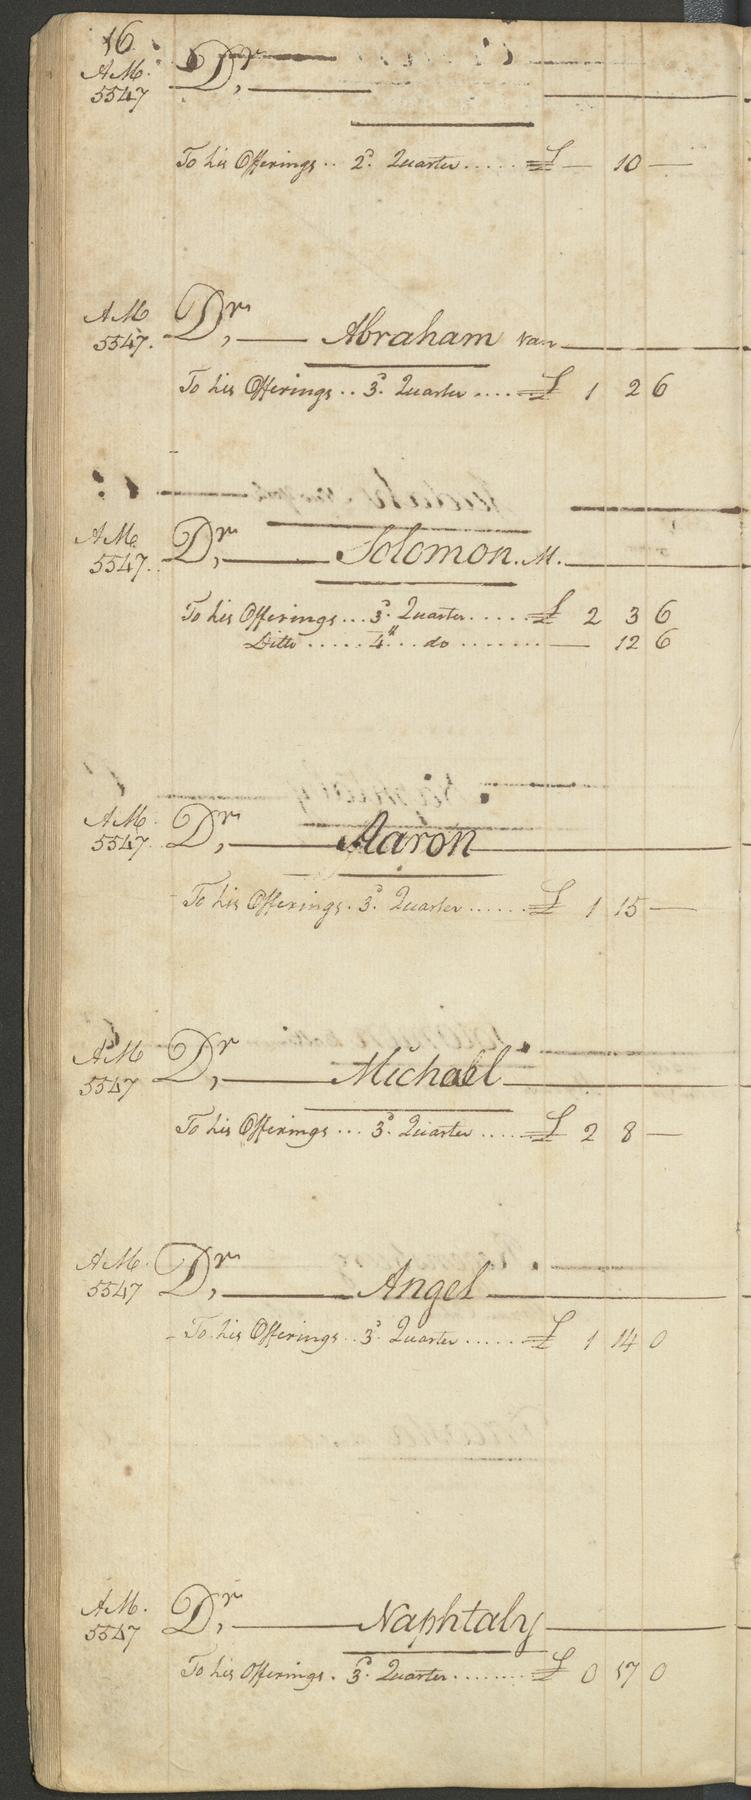 16
A M.
5547
Dr,
To his Offerings .. 2d. Quarter ..... £ — 10 —
A M
5547.
Dr, Abraham van
To his Offerings .. 3d. Quarter ..... £ 1 2 6
A M.
5547.
Dr, Solomon. M.
To his Offerings ... 3d. Quarter ..... £ 2 3 6
Ditto ..... 4th... do ........ — 12 6
A M.
5547
Dr, Aaron
To his Offerings. 3d. Quarter ...... £ 1 15 —
A M
5547
Dr, Michael
To his Offerings ... 3d. Quarter ..... £ 2 8 —
A M.
5547
Dr, Angel
To his Offerings .. 3d. Quarter ..... £ 1 14 0
A M.
5547
Dr, Naphtaly
To his Offerings . 3d. Quarter ........ £ 0 17 0